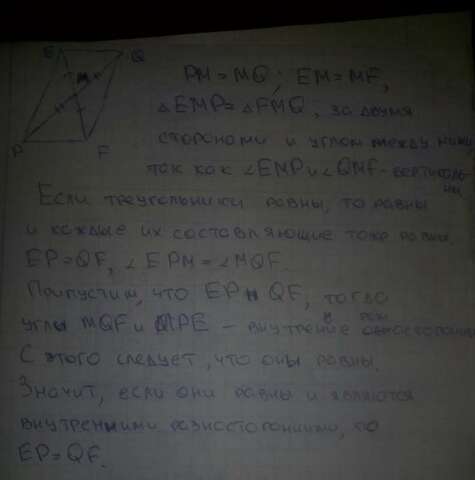 E Q
M
P F
PM = MQ; EM = MF,
△EMP = △FMQ, за двумя
сторонами и углом между ними,
так как ∠EMP и ∠QMF - вертикаль-
ны
Если треугольники равны, то равны
и каждые их составляющие тоже равны.
EP = QF, ∠EPM = ∠MQF.
Припустим, что EP || QF, тогда
углы MQF и MPE - внутрение односторонн
в разн
С этого следует, что оны равны.
Значит, если они равны и являются
внутренними разносторонними, то
EP = QF.